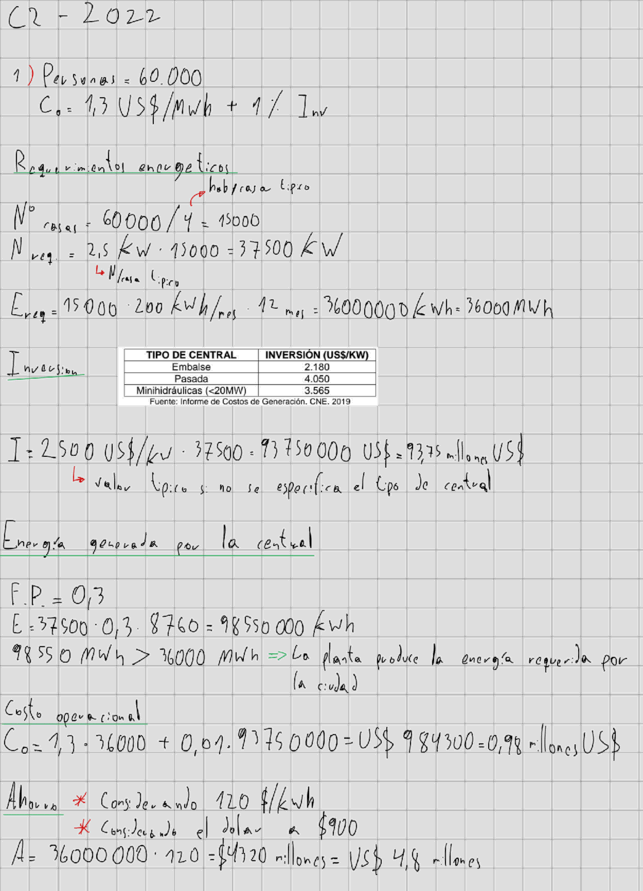 C2 - 2022
1) Personas = 60.000
Co = 1,3 US$/MWh + 1% Inv
Requerimientos energeticos
hab/casa tipico
N° casas = 60000/4 = 15000
N req. = 2,5 kW · 15000 = 37500 kW
N/casa tipico
Ereq = 15000 · 200 kWh/mes · 12 mes = 36000000 kWh = 36000 MWh
Inversion
TIPO DE CENTRAL INVERSIÓN (US$/KW)
Embalse 2.180
Pasada 4.050
Minihidráulicas (<20MW) 3.565
Fuente: Informe de Costos de Generación. CNE. 2019
I = 2500 US$/kW · 37500 = 93750000 US$ = 93,75 millones US$
valor tipico si no se especifica el tipo de central
Energía generada por la central
F.P. = 0,3
E = 37500 · 0,3 · 8760 = 98550000 kWh
98550 MWh > 36000 MWh => La planta produce la energía requerida por
la ciudad
Costo operacional
Co = 1,3 · 36000 + 0,01 · 93750000 = US$ 984300 = 0,98 millones US$
Ahorro * Considerando 120 $/kWh
* Considerando el dolar a $900
A = 36000000 · 120 = $4320 millones = US$ 4,8 millones